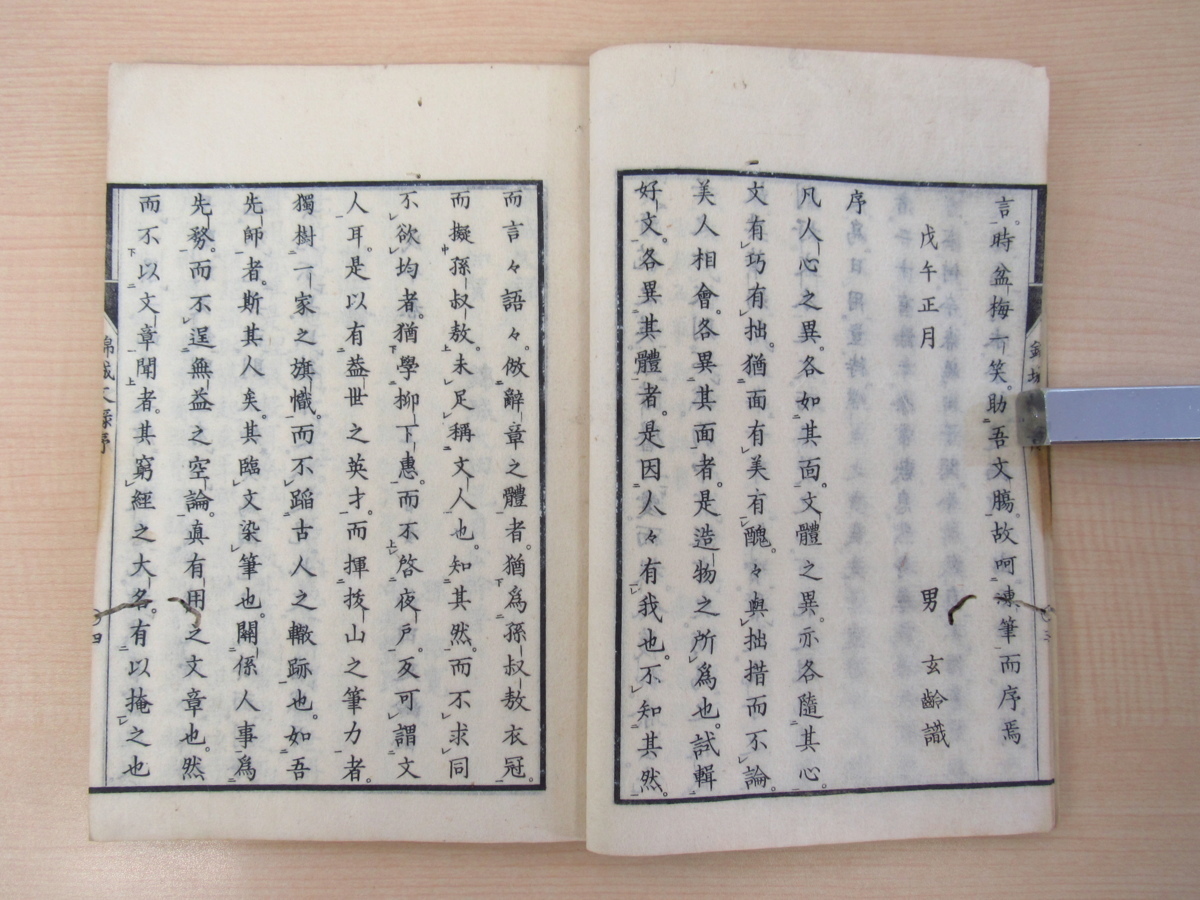 言。時盆梅一笑。助吾文膓。故呵凍筆而序焉
戊午正月　男　玄齡識
序
凡人心之異。各如其面。文體之異。亦各隨其心。
文有巧有拙。猶面有美有醜。々與拙措而不論。
美人相會。各異其面者。是造物之所爲也。試輯
好文。各異其體者。是因人々有我也。不知其然。
而言々語々。倣辭章之體者。猶爲孫叔敖衣冠。
而擬孫叔敖。未足稱文人也。知其然。而不求同
不欲均者。猶學柳下惠。而不啓夜戸。亥可謂文
人耳。是以有蓋世之英才。而揮拔山之筆力者。
獨樹一家之旗幟。而不蹈古人之轍跡也。如吾
先師者。斯其人矣。其臨文染筆也。關係人事爲
先務。而不逞無益之空論。真有用之文章也。然
而不以文章聞者。其窮經之大名。有以掩之也
錦城文錄序
四